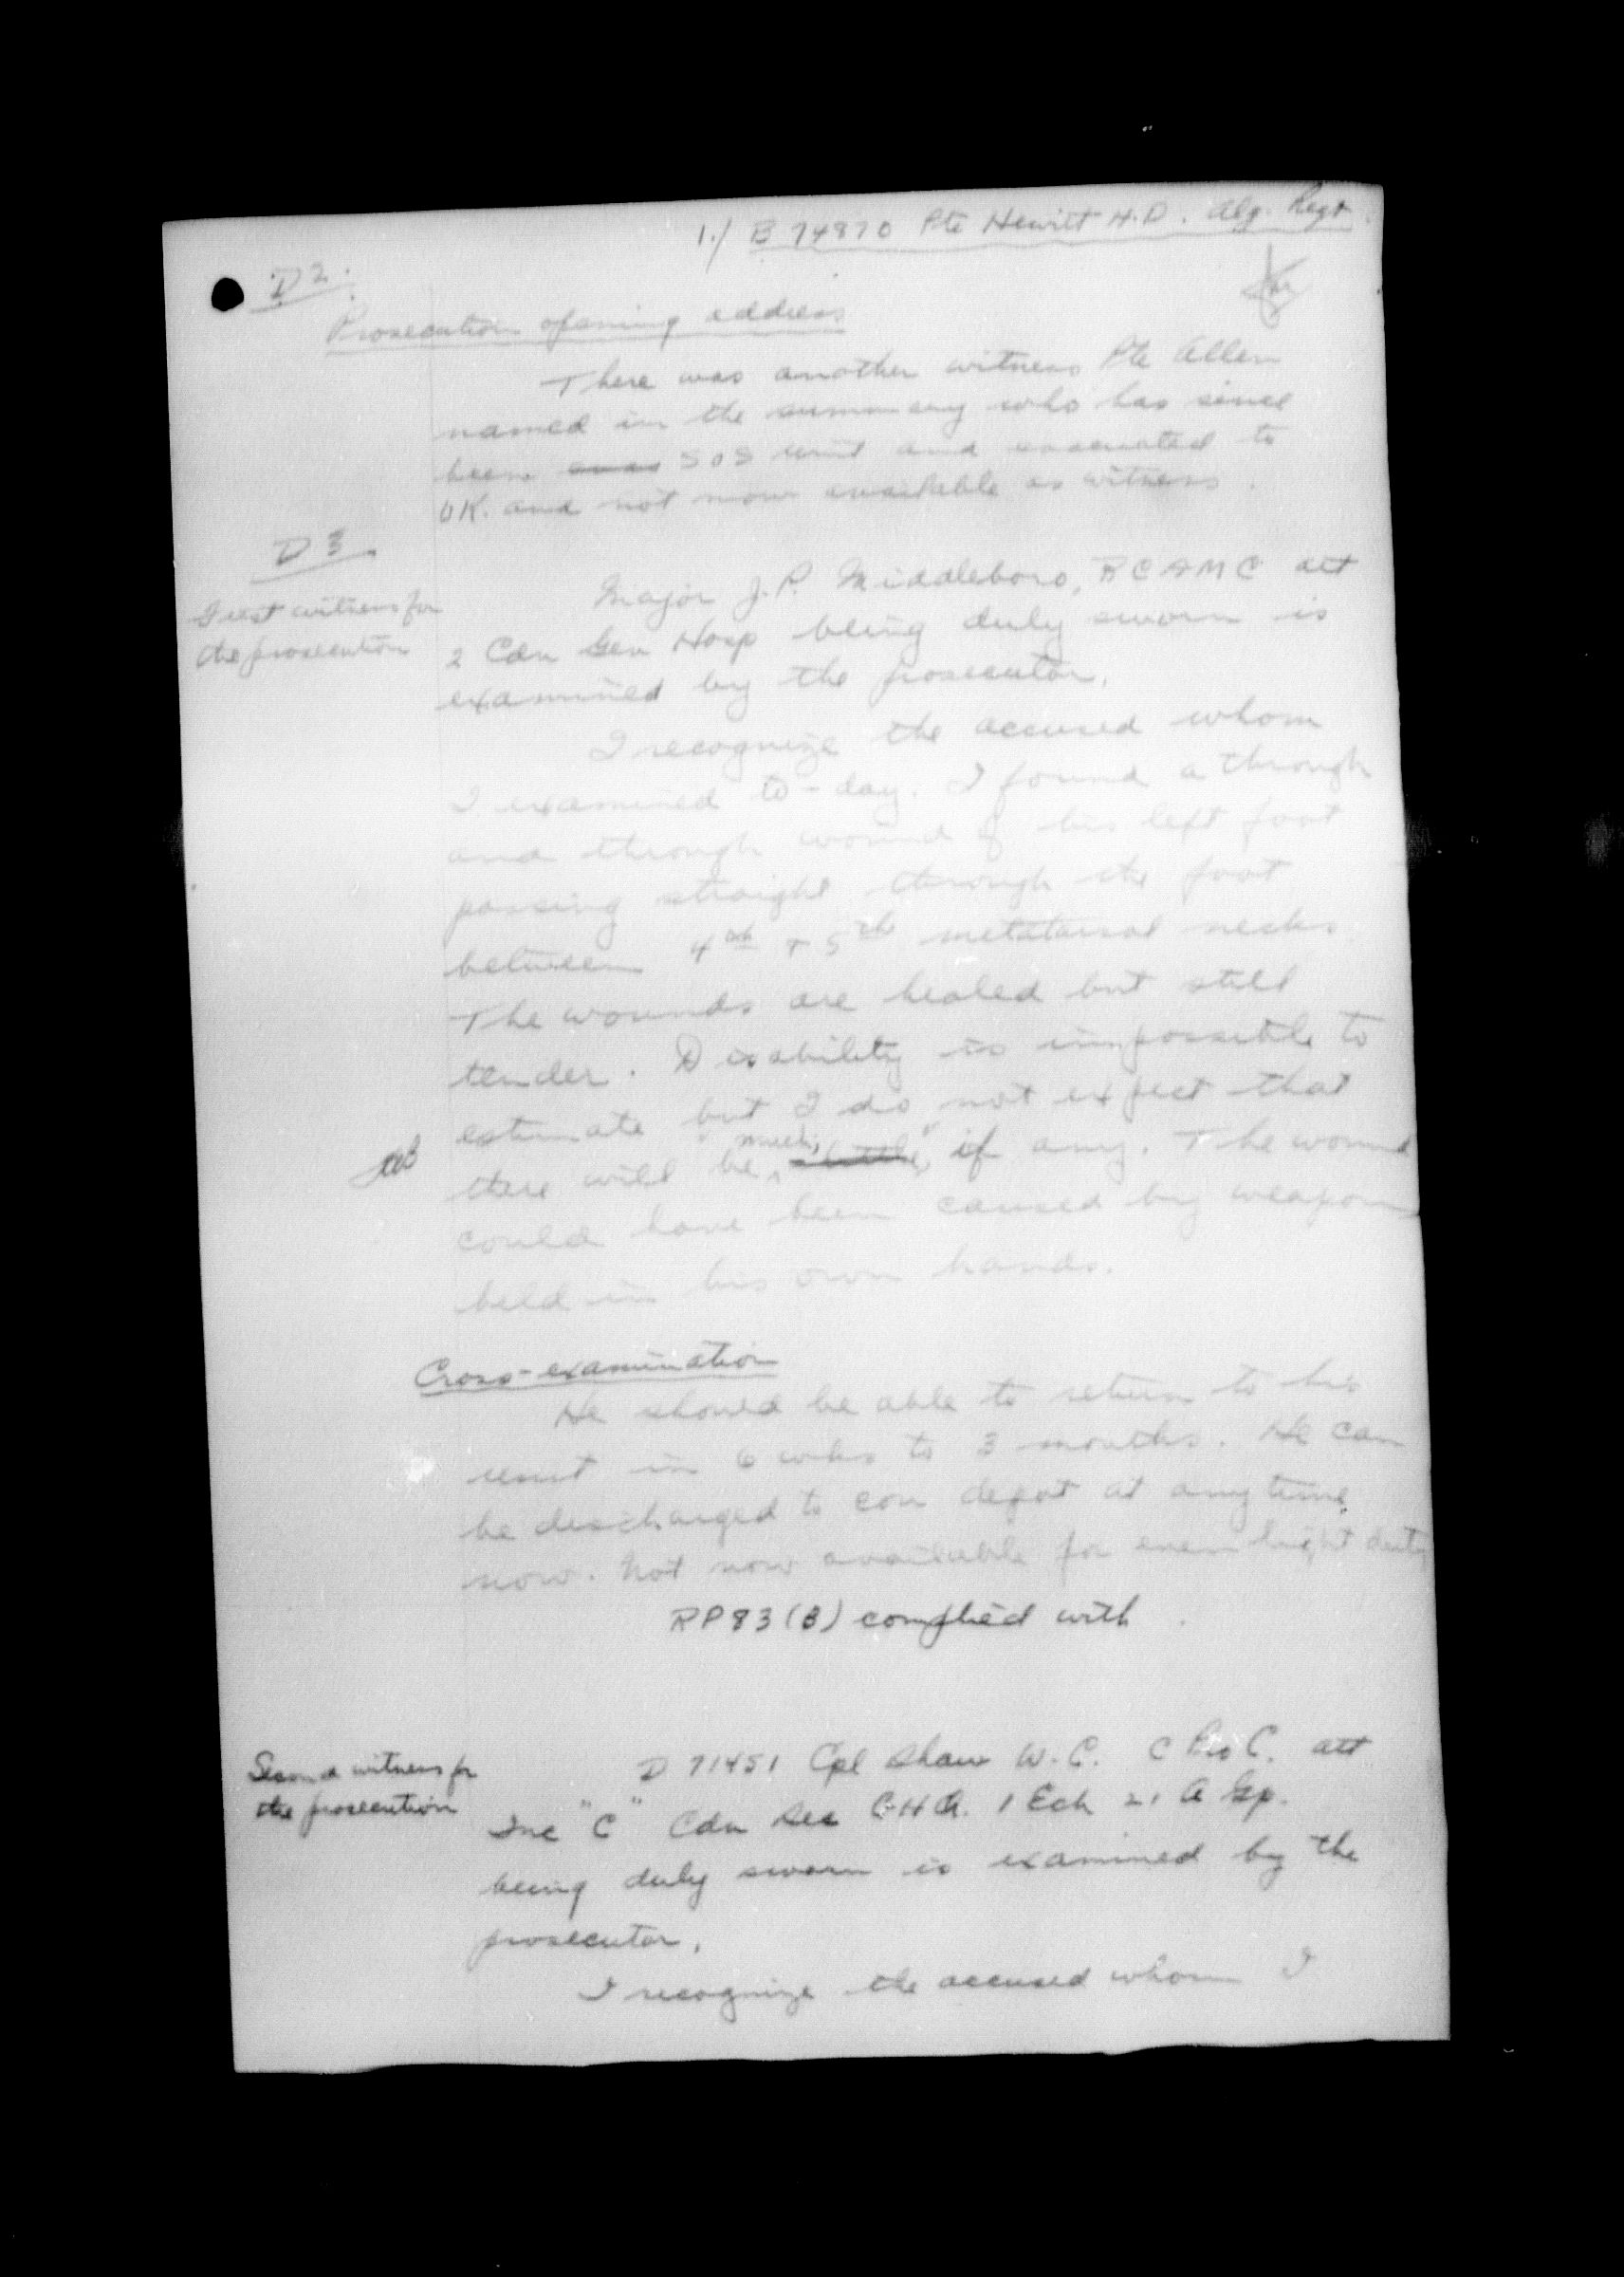 1./ B 74870 Pte Hewitt H.D. Alg. Regt
D2.
Prosecution opening address
There was another witness Pte Allen
named in the summary who has since
been SOS unit and evacuated to
UK. and not now available as witness.
D3
First witness for
the prosecution
Major J.P. Middleboro, RCAMC att
2 Cdn Gen Hosp being duly sworn is
examined by the prosecutor.
I recognize the accused whom
I examined to-day. I found a through
and through wound of his left foot
passing straight through the foot
between 4th + 5th metatarsal necks.
The wounds are healed but still
tender. Disability is impossible to
estimate but I do not expect that
there will be much, if any. The wound
could have been caused by weapon
held in his own hands.
Cross-examination
He should be able to return to his
unit in 6 wks to 3 months. He can
be discharged to con depot at any time
now. Not now available for even light duty
RP83(B) complied with.
Second witness for
the prosecution
D 71451 Cpl Shaw W.C. C Pro C. att
"C" Cdn Sec G.H.Q. 1 Ech 21 A Gp.
being duly sworn is examined by the
prosecutor.
I recognize the accused whom I